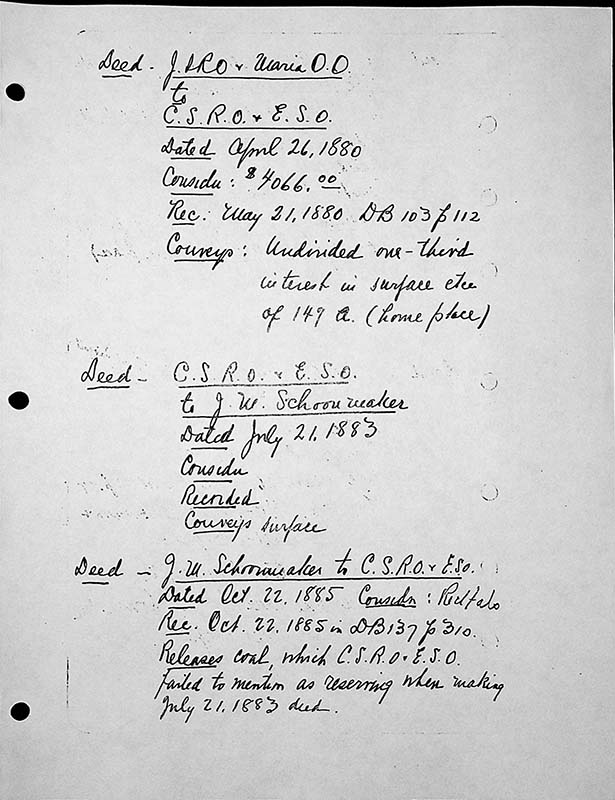 Deed - J.S.R.O & Maria O.O.
to
C.S.R.O. & E.S.O.
Dated April 26, 1880
Considn: $4066.00
Rec. May 21, 1880 DB 103 p 112
Conveys: Undivided one-third
interest in surface etc
of 149 a. (home place)
Deed - C.S.R.O. & E.S.O.
to J.M. Schoonmaker
Dated July 21, 1883
Considn
Recorded
Conveys surface
Deed - J.M. Schoonmaker to C.S.R.O. & E.S.O.
Dated Oct. 22, 1885 Considn:
Rec. Oct. 22, 1885 in DB 137 p 310.
Releases coal, which C.S.R.O. & E.S.O.
failed to mention as reserving when making
July 21, 1883 deed.